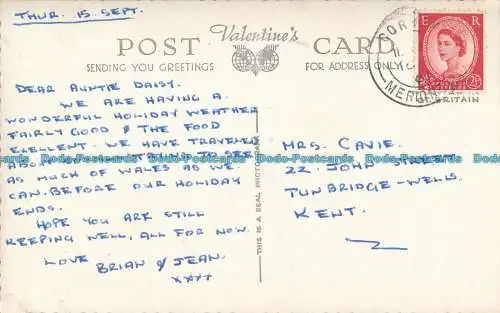 THUR. 15. SEPT.
Valentine's
POST CARD
SENDING YOU GREETINGS
FOR ADDRESS ONLY
E R
2½
DEAR AUNTIE DAISY.
WE ARE HAVING A
WONDERFUL HOLIDAY WEATHER
FAIRLY GOOD & THE FOOD
EXELLENT. WE HAVE TRAVELED
TRYING TO SEE
AS MUCH OF WALES AS WE
CAN BEFORE OUR HOLIDAY
ENDS.
HOPE YOU ARE STILL
KEEPING WELL, ALL FOR NOW.
LOVE
BRIAN & JEAN.
xxxx
THIS IS A REAL PHOTOGRAPH
BRITAIN
MRS. CAVIE.
22. JOHN STREET
TUNBRIDGE-WELLS.
KENT.
Dodo-Postcards Dodo-Postcards Dodo-Postcards Dodo-Postcards